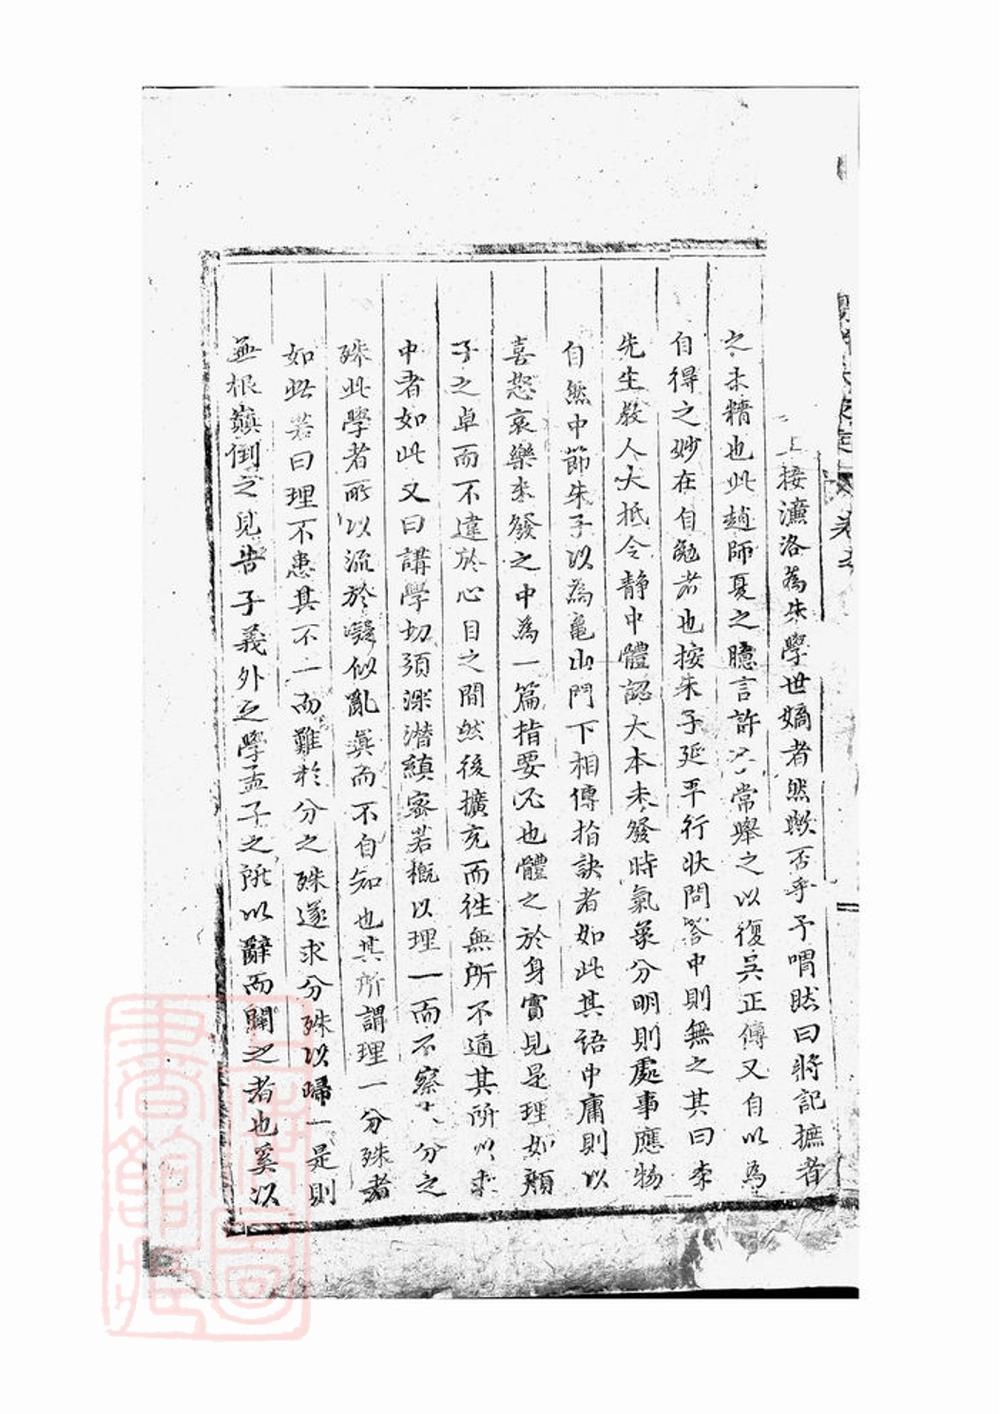 上接濂洛為朱學世嫡者然歟否乎予喟然曰將記摭者
之未精也此趙師夏之臆言許常舉之以復吳正傳又自以為
自得之妙在自勉者也按朱子延平行狀問答中則無之其曰李
先生教人大抵令靜中體認大本未發時氣象分明則處事應物
自然中節朱子以為龜山門下相傳指訣者如此其語中庸則以
喜怒哀樂未發之中為一篇指要必也體之於身實見是理如顏
子之卓而不違於心目之間然後擴充而往無所不通其所以求
中者如此又曰講學切須深潛縝密若概以理一而不察分之
殊此學者所以流於疑似亂真而不自知也其所謂理一分殊者
如此若曰理不患其不一而難於分之殊遂求分殊以歸一是則
無根巔倒之見告子義外之學孟子之所以辭而闢之者也奚以